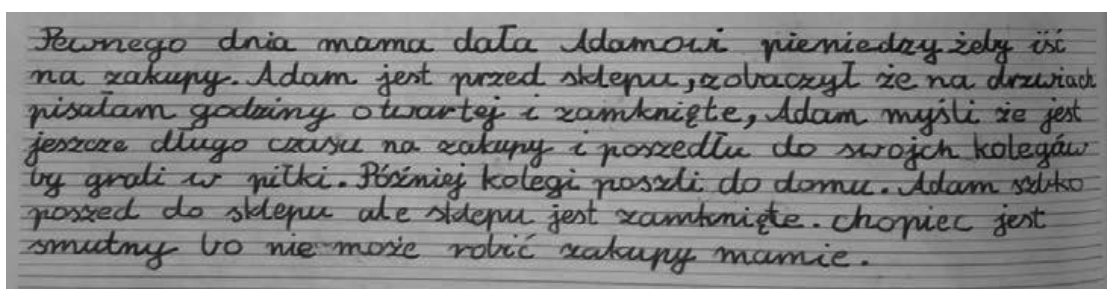 Pewnego dnia mama dała Adamowi pieniedzy żeby iść
na zakupy. Adam jest przed sklepu, zobaczył że na drzwiach
pisałam godziny otwartej i zamknięte, Adam myśli że jest
jeszcze długo czasu na zakupy i poszedłu do swojch kolegów
by grali w piłki. Później kolegi poszli do domu. Adam szbko
poszed do sklepu ale sklepu jest zamknięte. chopiec jest
smutny bo nie może robić zakupy mamie.